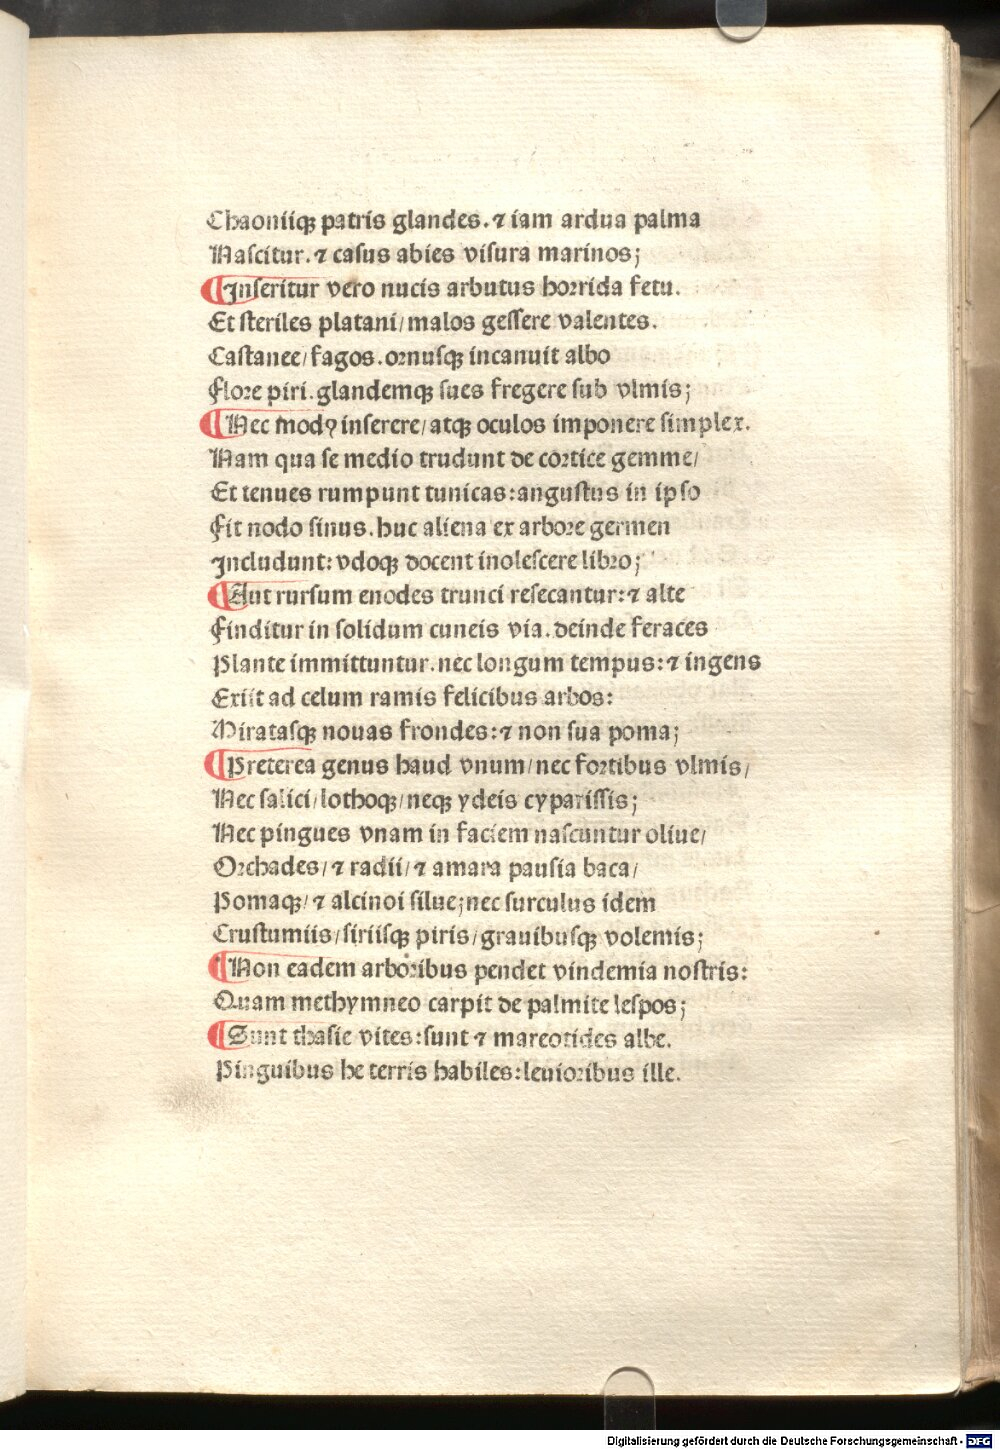 Chaoniiqꝫ patris glandes. ⁊ iam ardua palma
Naſcitur. ⁊ caſus abies viſura marinos;
¶ Inſeritur vero nucis arbutus hoꝛrida fetu.
Et ſteriles platani/ malos geſſere valentes.
Caſtanee/ fagos. oꝛnuſqꝫ incanuit albo
Floꝛe piri. glandemqꝫ ſues fregere ſub vlmis;
¶ Nec modꝰ inſerere/ atqꝫ oculos imponere ſimplex.
Nam qua ſe medio trudunt de coꝛtice gemme/
Et tenues rumpunt tunicas: anguſtus in ipſo
Fit nodo ſinus. huc aliena ex arboꝛe germen
Includunt: vdoqꝫ docent inoleſcere libꝛo;
¶ Aut rurſum enodes trunci reſecantur: ⁊ alte
Finditur in ſolidum cuneis via. deinde feraces
Plante immittuntur. nec longum tempus: ⁊ ingens
Exiit ad celum ramis felicibus arbos:
Mirataſqꝫ nouas frondes: ⁊ non ſua poma;
¶ Preterea genus haud vnum/ nec foꝛtibus vlmis/
Nec ſalici/ lothoqꝫ/ neqꝫ ydeis cypariſſis;
Nec pingues vnam in faciem naſcuntur oliue/
Oꝛchades/ ⁊ radii/ ⁊ amara pauſia baca/
Pomaqꝫ/ ⁊ alcinoi ſilue; nec ſurculus idem
Cruſtumiis/ ſiriiſqꝫ piris/ grauibuſqꝫ volemis;
¶ Non eadem arboꝛibus pendet vindemia noſtris:
Quam methymneo carpit de palmite leſpos;
¶ Sunt thaſie vites: ſunt ⁊ mareotides albe.
Pinguibus he terris habiles: leuioꝛibus ille.
Digitalisierung gefördert durch die Deutsche Forschungsgemeinschaft - DFG